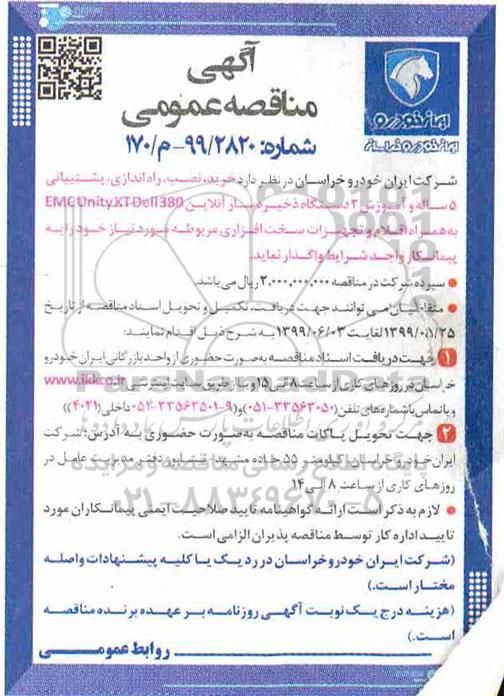 ایران خودرو
ایران خودرو خراسان
آگهی
مناقصه عمومی
شماره: ۹۹/۲۸۲۰-م/۱۷۰
شرکت ایران خودرو خراسان در نظر دارد خرید، نصب، راه اندازی، پشتیبانی
۵ ساله و آموزش ۲ دستگاه ذخیره ساز آنلاین EMC Unity XT Dell 380
به همراه اقلام و تجهیزات سخت افزاری مربوطه مورد نیاز خود را به
پیمانکار واجد شرایط واگذار نماید.
• سپرده شرکت در مناقصه ۲.۰۰۰.۰۰۰.۰۰۰ ریال می باشد.
• متقاضیان می توانند جهت دریافت، تکمیل و تحویل اسناد مناقصه از تاریخ
۱۳۹۹/۰۵/۲۵ لغایت ۱۳۹۹/۰۶/۰۳ به شرح ذیل اقدام نمایند:
۱ جهت دریافت اسناد مناقصه به صورت حضوری از واحد بازرگانی ایران خودرو
خراسان در روزهای کاری از ساعت ۸ الی ۱۵ و یا از طریق سایت اینترنتی www.ikkco.ir
و یا تماس با شماره های تلفن (۳۳۵۶۳۰۵۰-۰۵۱) و (۹-۳۳۵۶۳۵۰۱-۰۵۱ داخلی (۴۰۲۱))
۲ جهت تحویل پاکات مناقصه به صورت حضوری به آدرس: شرکت
ایران خودرو خراسان، کیلومتر ۵۵ جاده مشهد- نیشابور دفتر مدیریت عامل در
روزهای کاری از ساعت ۸ الی ۱۴
• لازم به ذکر است ارائه گواهینامه تایید صلاحیت ایمنی پیمانکاران مورد
تایید اداره کار توسط مناقصه پذیران الزامی است.
(شرکت ایران خودرو خراسان در رد یک یا کلیه پیشنهادات واصله
مختار است.)
(هزینه درج یک نوبت آگهی روزنامه بر عهده برنده مناقصه
است.)
روابط عمومی
ParsNamadData
پایگاه اطلاع رسانی مناقصه و مزایده
۰۲۱-۸۸۳۴۹۶۷۰-۵